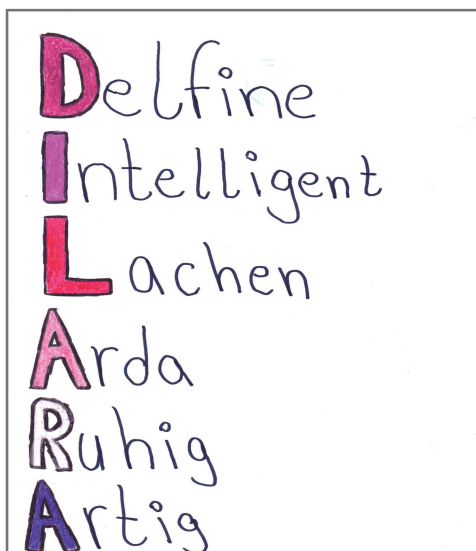 Delfine
Intelligent
Lachen
Arda
Ruhig
Artig